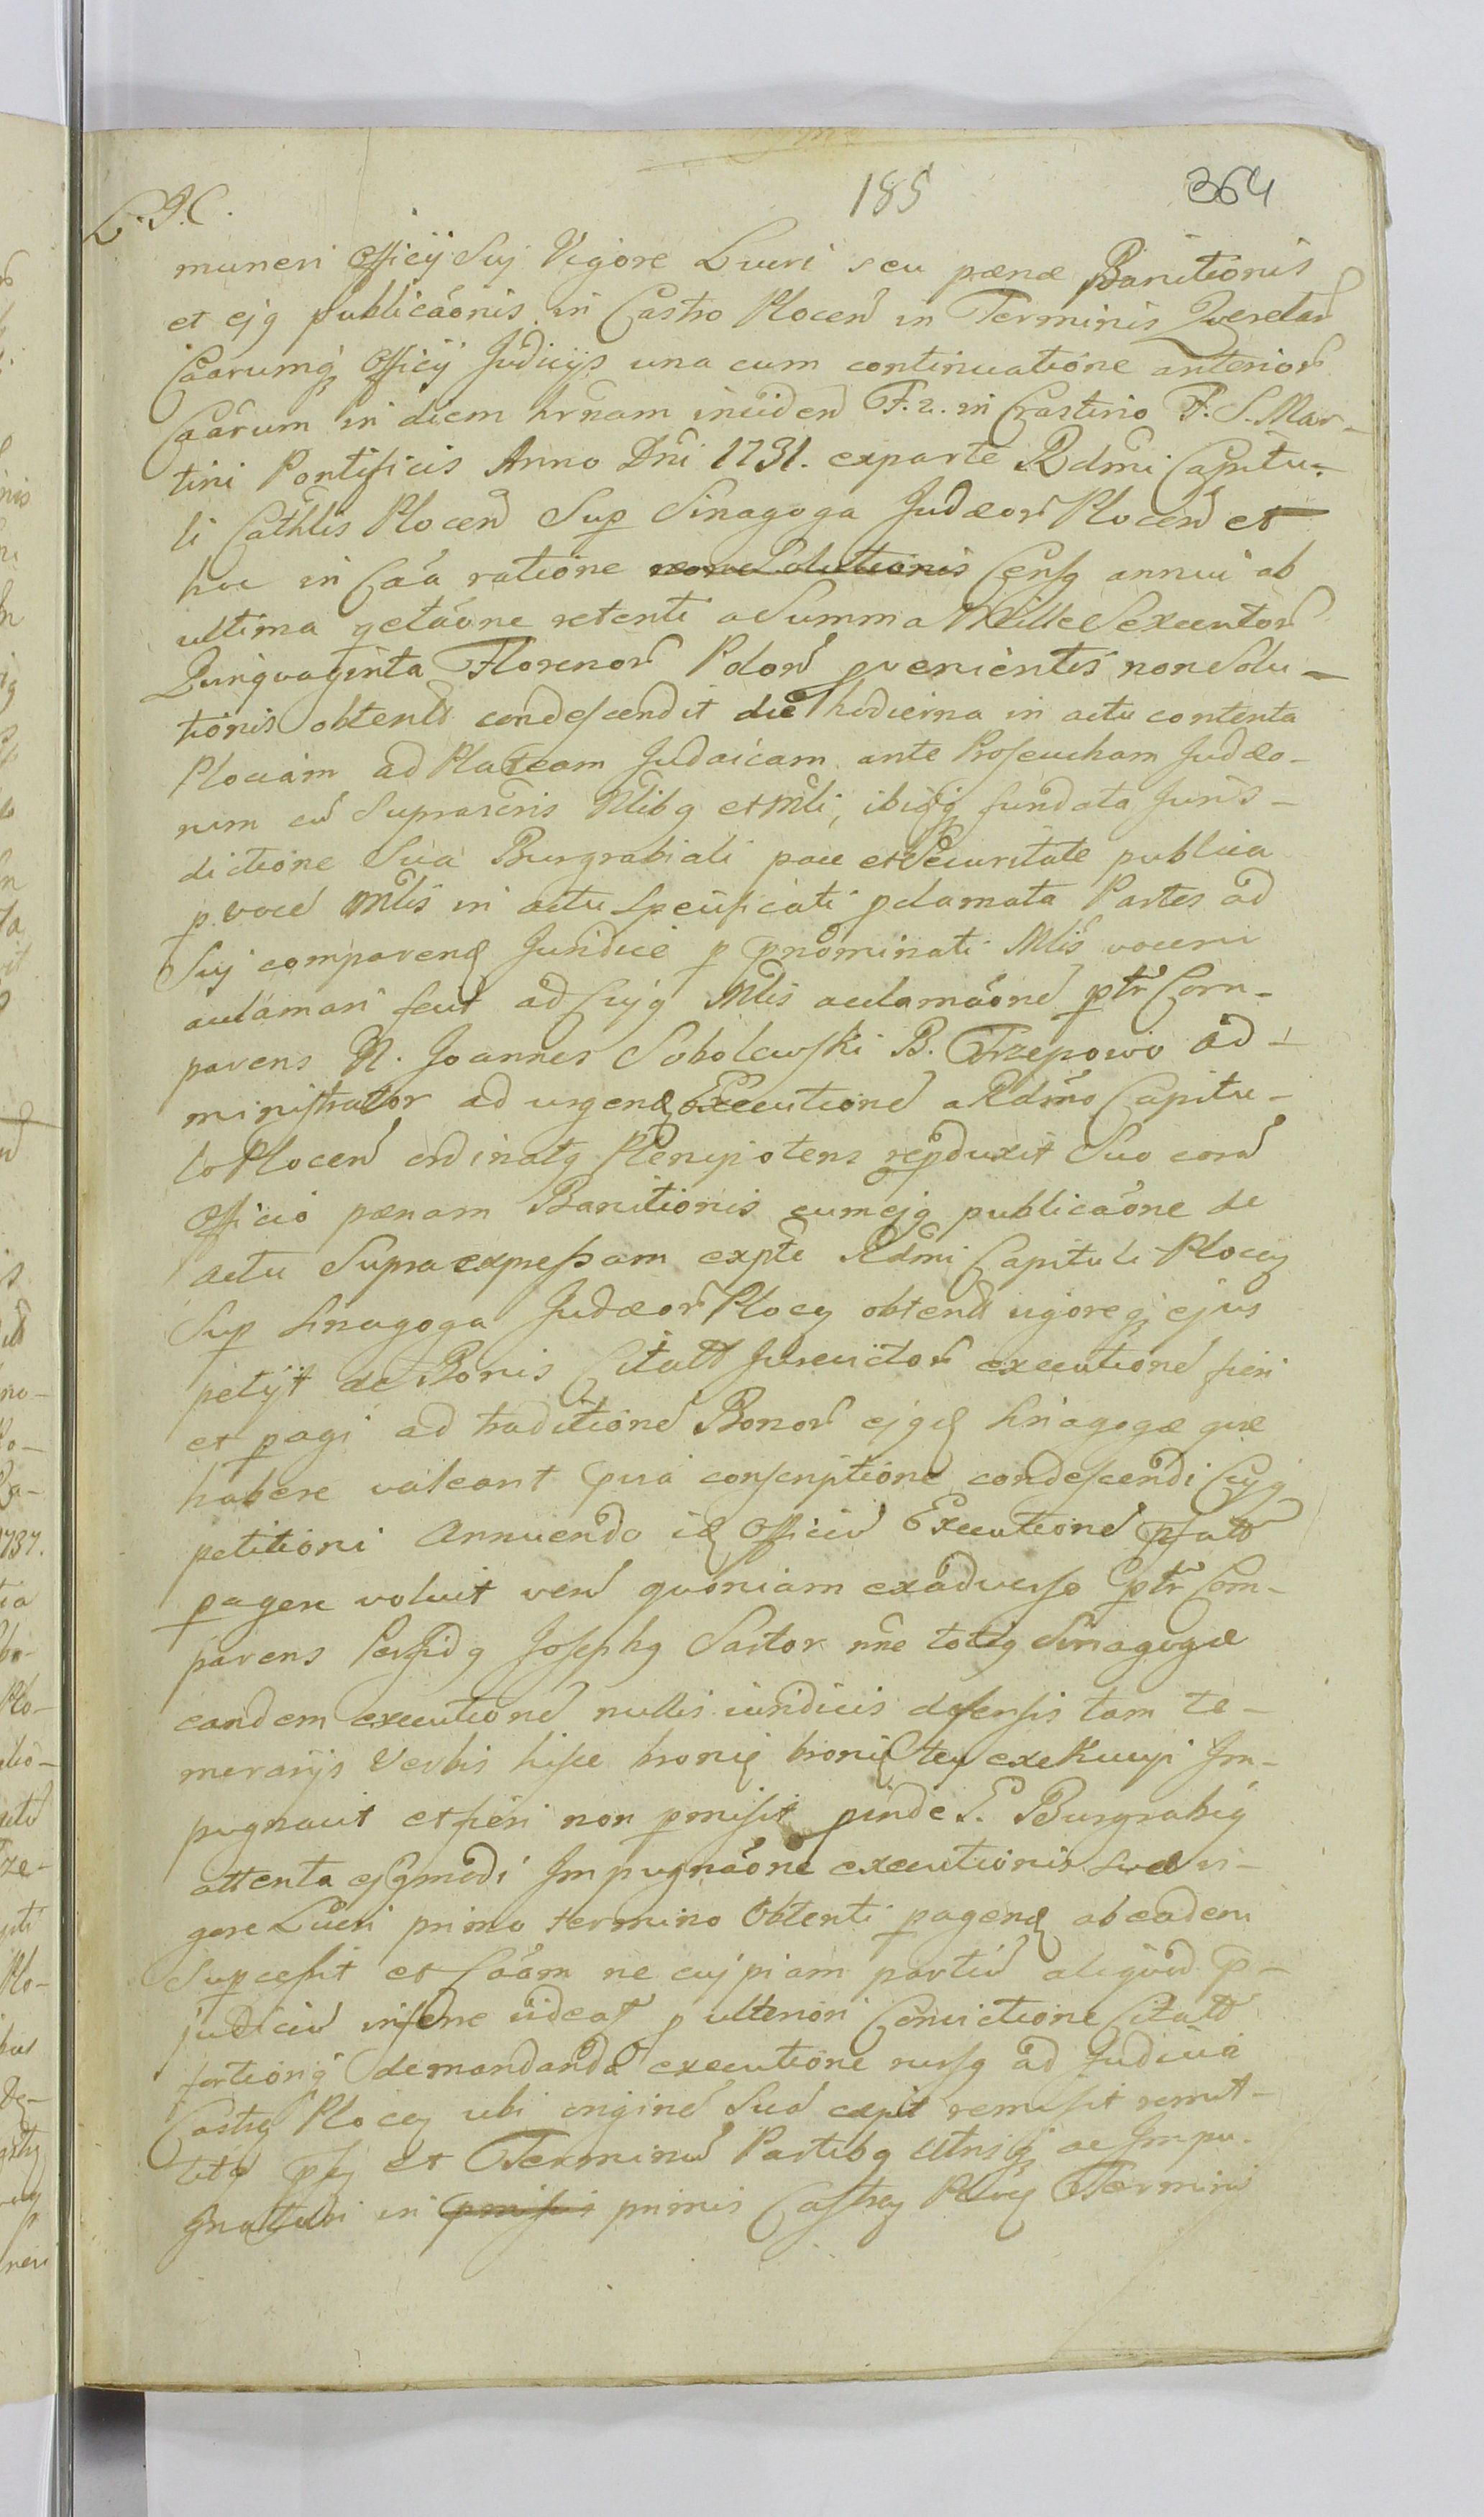 L. J. C.
185
364
muneri Officij Sui Vigore Lucri seu pænæ Banitionis
et ejq publicáonis in Castro Plocen in Terminis Querelar
Caarumq Officij Judicijs una cum continuatione anterior
Caarum in diem hrnam inciden F. 2. in Crastino F. S. Mar-
tini Pontificis Anno Dni 1731. exparte Rdmi Capitu-
li Cathlis Plocen Sup Sinagoga Judæor Plocen et
hoc in Caa ratione nonSolutionis Censq annui ab
ultima qetaone retenti a Summa Mille Sexcentor
Quinquaginta Florenor Polor pvenientis nonSolu-
tionis obtent condescendit die hodierna in actu contenta
Plociam ad Plateam Judaicam ante Proseucham Judæo-
rum cu Suprascris Nlibq et Mli, ibiq fundata Juris-
dictione Sua Burgrabiali pace et Securitate publica
p. voce Mlis in actu Specificati pclamata Partes ad
Sui comparend Juridice p pnominati Mlis vocem
acclamari fecit ad Cujq Mlis acclamáone ptr Com-
parens N. Joannes Sobolewski B. Trzepowo Ad-
ministrator ad urgend Executione a Rdmo Capitu-
lo Plocen ordinatq Plenipotens repduxit Suo cora
Officio pænam Banitionis cum ejq publicáone de
actu Supra expressam expte Rdmi Capituli Plocen
Sup Sinagoga Judæor Plocen obtent vigoreq ejus
petijt de Bonis Citatt Jurevictor executione fieri
et pagi ad traditione Bonor ejqd Sinagogæ quæ
habere valeant qua conscriptione condescendi Cujq
petitioni Annuendo id Officiu Executione pfatt
pagere voluit veru quoniam exadverso ptr Com-
parens Perfidq Josephq Sartor nne totiq Sinagogæ
eandem executione nullis iuridicis defensis tam te-
merarijs Verbis hisce bronię bronię tey exekucyi Im-
pugnavit et fieri non pmisit pinde G. Burgrabiq
attenta ejqmodi Impugnáone executionis suæ vi-
gore Lucri primo termino Obtenti pagend ab eadem
Supcessit et Caam ne cujpiam partiu aliquod p-
judiciu inferre videat p ulteriori Convictione Citatt
fortioriq demandanda executione rursq ad Judicia
Castr Plocen ubi origine Sua cæpit remisit remit-
titq pns et Terminu Partibq Utrisq ac Impu-
gnatori in pmissis primis Castren Plocen Termini